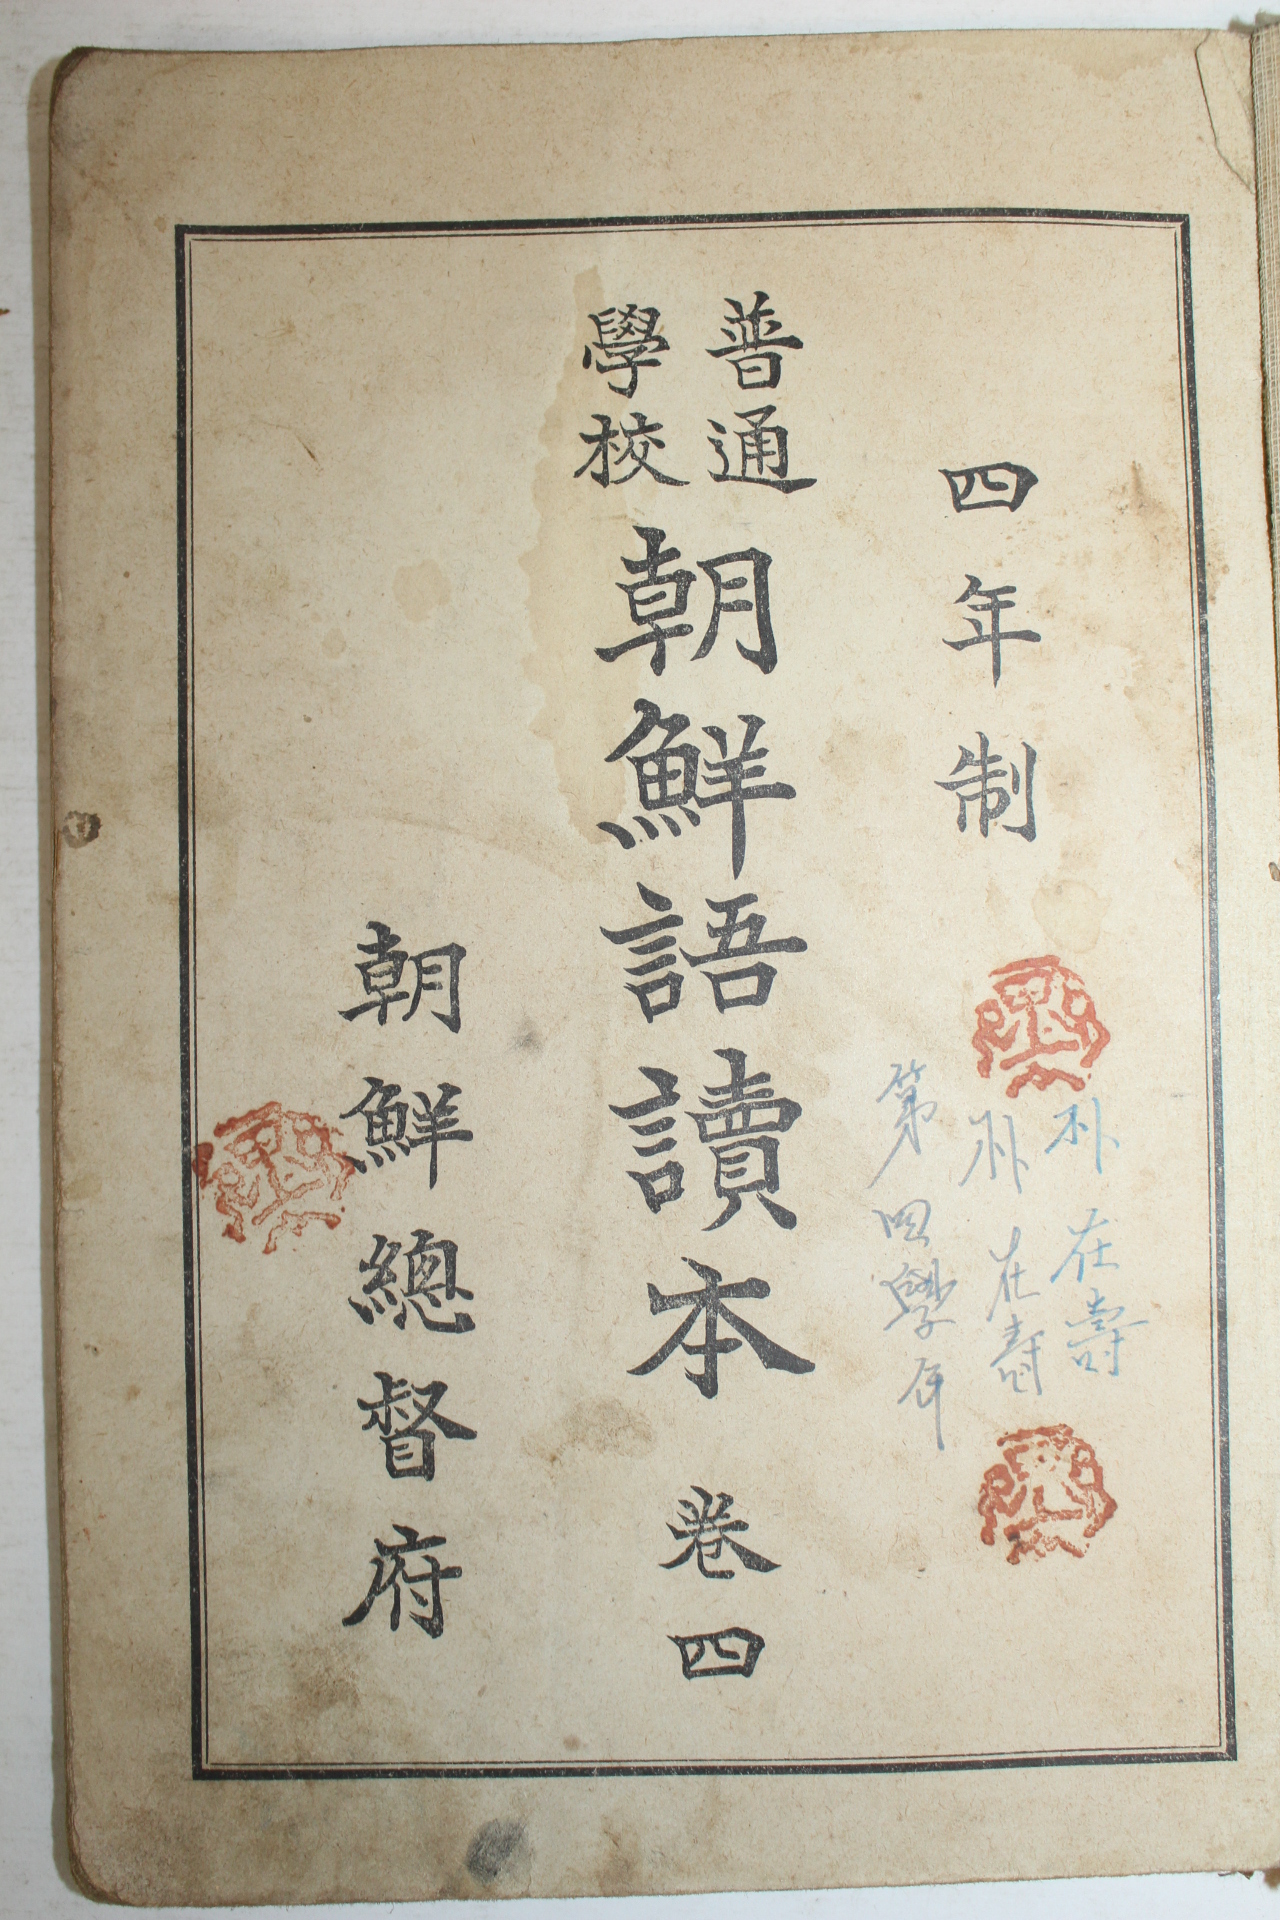 四年制
朴在壽
朴在壽
第四學年
普通
學校
朝鮮語讀本 卷四
朝鮮總督府